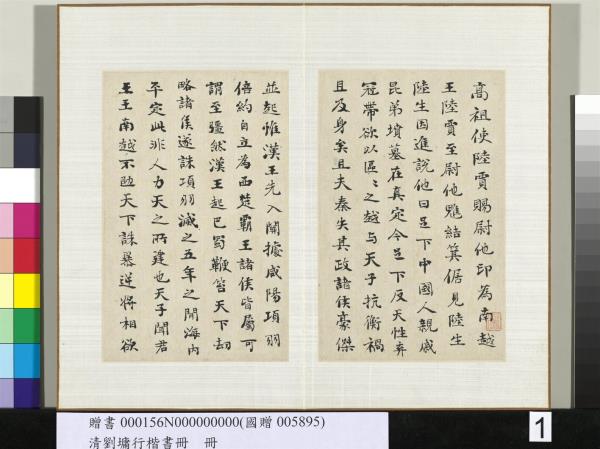 高祖使陸賈賜尉他印為南越
王陸賈至尉他魋結箕倨見陸生
陸生因進說他曰足下中國人親戚
昆弟墳墓在真定今足下反天性弃
冠帶欲以區〻之越与天子抗衡禍
且及身矣且夫秦失其政諸侯豪傑
並起惟漢王先入關據咸陽項羽
倍約自立為西楚霸王諸侯皆屬可
謂至彊然漢王起巴蜀鞭笞天下劫
略諸侯遂誅項羽滅之五年之間海內
平定此非人力天之所建也天子聞君
王王南越不助天下誅暴逆將相欲
贈書 000156N000000000(國贈 005895)
清劉墉行楷書冊 冊
1